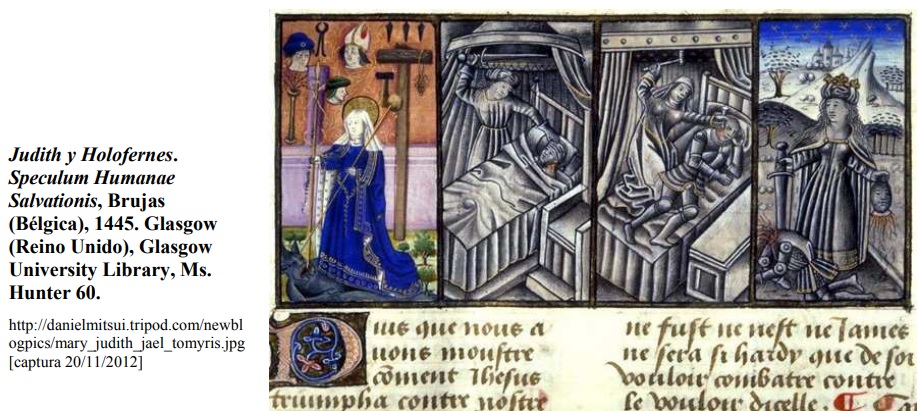 Judith y Holofernes.
Speculum Humanae
Salvationis, Brujas
(Bélgica), 1445. Glasgow
(Reino Unido), Glasgow
University Library, Ms.
Hunter 60.
http://danielmitsui.tripod.com/newbl
ogpics/mary_judith_jael_tomyris.jpg
[captura 20/11/2012]
Duis que nous a
uons moustre
cōment Ihesus
triumpha contre nostre
ne fust ne nest ne James
ne sera si hardy que de soi
vouloir combatre contre
le vouloir dicelle.